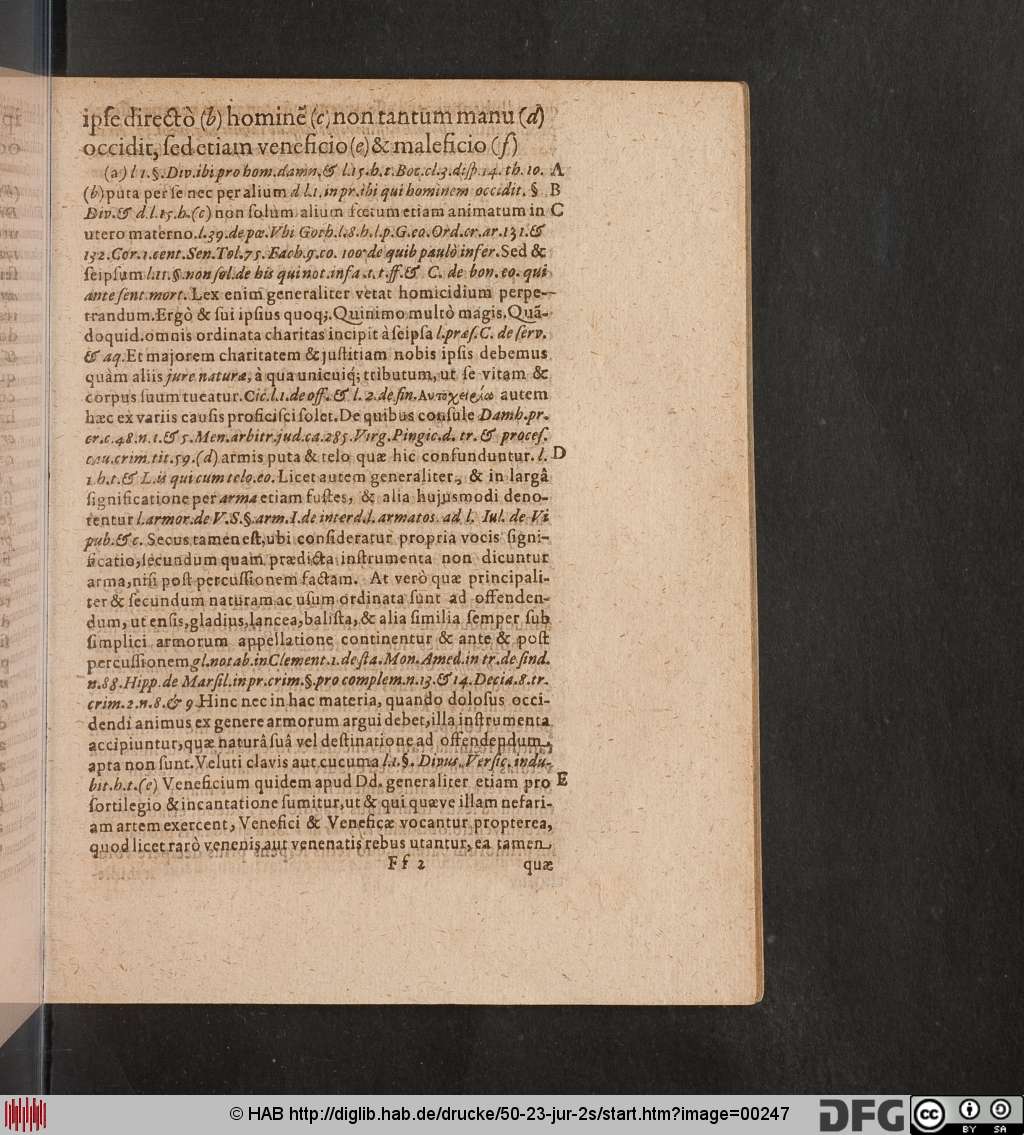 ipſe directò (b) hominẽ (c) non tantum manu (d)
occidit, ſed etiam veneficio (e) & maleficio (f)
(a) l 1. §. Div. ibi pro hom. damn. & l. 15. h. t. Boc. cl. 3. diſp. 14. th. 10. A
(b) puta per ſe nec per alium d l. 1. in pr. ibi qui hominem occidit. § B
Div. & d. l. 15. h. (c) non ſolum alium fœtum etiam animatum in C
utero materno. l. 39. de pœ. Vbi Goth. l. 8. h. l. p. G. co. Ord. cr. ar. 131. &
132. Cor. 1. cent. Sen. Tol. 75. Bach. 9. co. 100. de quib paulò infer. Sed &
ſeipſum l. 11. §. non ſol. de his qui not. infa. t. t. ff. & C. de bon. eo. qui
ante ſent. mort. Lex enim generaliter vetat homicidium perpe-
trandum. Ergò & ſui ipſius quoq;. Quinimo multò magis. Quã-
doquid. omnis ordinata charitas incipit à ſeipſa l. præſ. C. de ſerv.
& aq. Et majorem charitatem & juſtitiam nobis ipſis debemus
quàm aliis jure naturæ, à qua unicuiq; tributum, ut ſe vitam &
corpus ſuum tueatur. Cic. l. 1. de off. & l. 2. de fin. Αυτοχειρία autem
hæc ex variis cauſis proficiſci ſolet. De quibus conſule Damh. pr.
cr. c. 48. n. 1. & 5. Men. arbitr. jud. ca. 285. Virg. Pingic. d. tr. & proceſ.
cau. crim. tit. 59. (d) armis puta & telo quæ hic confunduntur. l. D
1. h. t. & L. is qui cum telo. eo. Licet autem generaliter, & in largâ
ſignificatione per arma etiam fuſtes, & alia hujusmodi deno-
tentur l. armor. de V. S. §. arm. I. de interd. l. armatos. ad l. Iul. de Vi
pub. & c. Secus tamen eſt, ubi conſideratur propria vocis ſigni-
ficatio, ſecundum quam prædicta inſtrumenta non dicuntur
arma, niſi poſt percuſſionem factam. At verò quæ principali-
ter & ſecundum naturam ac uſum ordinata ſunt ad offenden-
dum, ut enſis, gladius, lancea, baliſta, & alia ſimilia ſemper ſub
ſimplici armorum appellatione continentur & ante & poſt
percuſſionem gl. notab. in Clement. 1. de ſta. Mon. Amed. in tr. de ſind.
n. 88. Hipp. de Marſil. in pr. crim. §. pro complem. n. 13. & 14. Decia. 8. tr.
crim. 2. n. 8. & 9. Hinc nec in hac materia, quando doloſus occi-
dendi animus ex genere armorum argui debet, illa inſtrumenta
accipiuntur, quæ naturâ ſuâ vel deſtinatione ad offendendum,
apta non ſunt. Veluti clavis aut cucuma l. 1. §. Divus. Verſic. indu-
bit. h. t. (e) Veneficium quidem apud Dd. generaliter etiam pro E
ſortilegio & incantatione ſumitur, ut & qui quæve illam nefari-
am artem exercent, Venefici & Veneficæ vocantur propterea,
quod licet rarò venenis aut venenatis rebus utantur, ea tamen
Ff 2 quæ
© HAB http://diglib.hab.de/drucke/50-23-jur-2s/start.htm?image=00247
DFG cc BY SA